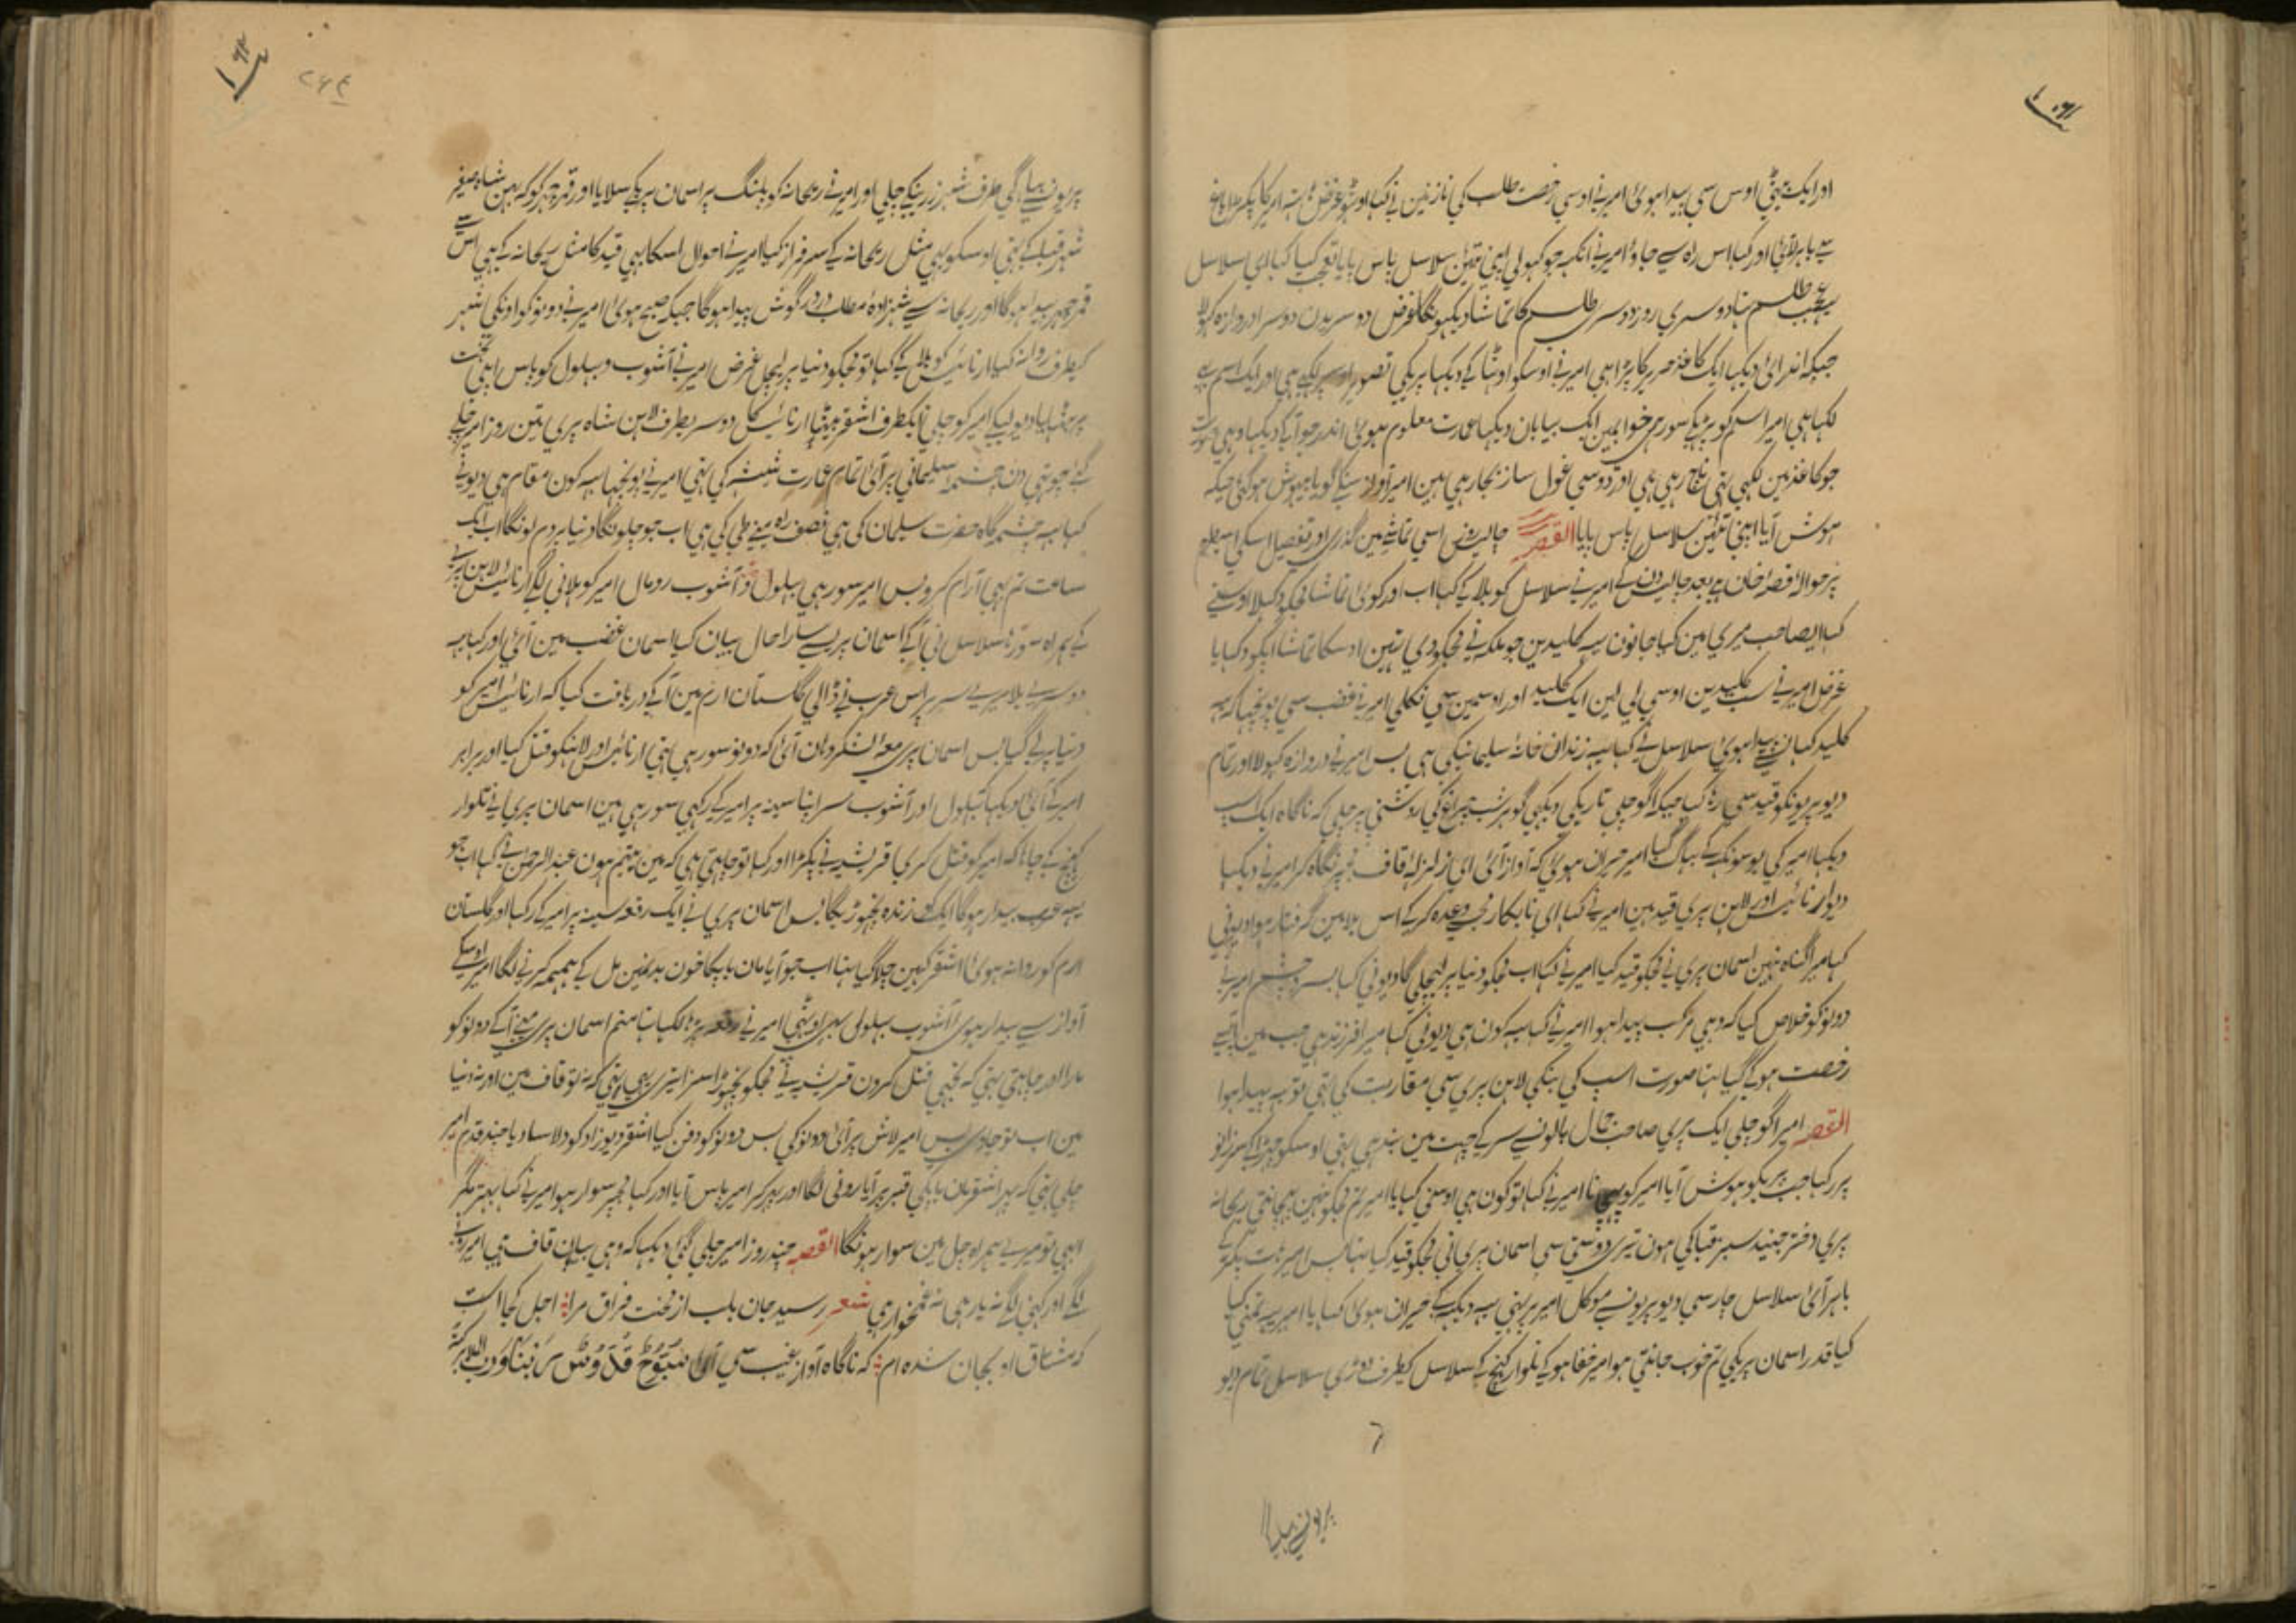 اور ایک بیٹی اوس سی پیدا ہوئی امیر نے اوسی رخصت طلب کی نازنین نے کہا
سے باہر لائی اور کہا اس راہ سے جاو امیر نے آنکہہ جو کہولی اپنی تئین سلاسل پاس پایا تعجب کیا کہا ای سلاسل
عجب طلسم تہا دوسری روز دوسری طلسم کا تماشا دیکہونگا غرض دوسریدن دوسرا دروازہ کہولا
جبکہ اندر آئی دیکہا ایک کاغذ حریر کا پڑا ہی امیر نے اوسکو اوٹہا کے دیکہا پریکی تصویر اوسپر لکہی ہی اور ایک اسم بہی
لکہا ہی امیر اسم کو پڑہکے سو رہی خوابمین ایک بیابان دیکہا عمارت معلوم ہوئی اندر جو آکے دیکہا وہی صورت
جو کاغذ مین لکہی تہی ناچ رہی ہی اور دوسی غول ساز بجا رہی ہین امیر آواز سنکے گویا بیہوش ہو گئی جبکہ
ہوش آیا اپنی تئین سلاسل پاس پایا القصہ چالیس روز اسی تماشے مین گذری اور تفصیل اسکی
پر حوالہ قصہ خوان ہے بعد چالیس دن کے امیر نے سلاسل کو بلا کے کہا اب اور کوئی تماشا مجکو دکہلا اوسنے
کہا ایصاحب میری مین کیا جانون یہ کلیدین جو ملکہ نے مجکو دی تہین اوسکا تماشا آپکو دکہایا
غرض امیر نے سب کلیدین اوسی لی لین ایک کلید اور اوسمین سی نکلی امیر نے غضب سی پوچہا کہ یہ
کلید کہان سے پیدا ہوئی سلاسل نے کہا یہ زندان خانہ سلیمانیکی ہی بس امیر نے دروازہ کہولا اور تمام
دیو پریونکو قید سی رہا کیا جبکہ آگو چلی تاریکی دیکہی گوہر شب چراغ کی روشنی پر چلی کہ ناگاہ ایک اسپ
دیکہا امیر کی بو سونگہہ کے بہاگ گیا امیر حیران ہوئی کہ آواز آئی ای زلزلہ قاف نگاہ کر امیر نے دیکہا
دیو ارنائیس اور لاہن پری قید مین امیر نے کہا ای نابکار مجسے وعدہ کر کے اس بلا مین گرفتار ہوا دیونی
کہا میرا گناہ نہین اسمان پری نے مجکو قید کیا امیر نے کہا اب مجکو دنیا پر لیچلیگا دیونی کہا بسر و چشم امیر نے
دونو کو خلاص کیا کہ وہی مرکب پیدا ہوا امیر نے کہا یہ کون ہی دیونی کہا میرا فرزند ہی جب مین آپسے
رخصت ہو کے گیا تہا صورت اسپ کی بنکے لاہن پری سی مقاربت کی تہی تو یہ پیدا ہوا
القصہ امیر آگو چلی ایک پری صاحب جمال بالون سے سر کے چہت مین بندہی تہی اوسکو چہڑا کے سر زانو
پر رکہا جب پریکو ہوش آیا امیر کو پہچانا امیر نے کہا تو کون ہی اوسنی کہا یا امیر تم مجکو نہین پہچانتی ریحانہ
پری دختر جنید سبز قبا کی ہون تیری دوستی سی اسمان پری نی مجکو قید کیا تہا بس امیر ہات پکڑ کے
باہر آئی سلاسل چار سی دیو پریون سے موکل امیر پر تہی یہ دیکہہ کے حیران ہوئی کہا یا امیر یہ تمنی کیا
کیا قدر اسمان پریکی تم خوب جانتی ہو امیر خفا ہو کے تلوار کہینچ کے سلاسل کیطرف دوڑی سلاسل تمام دیو
پریون سے بہاگی طرف شہر زرینکے چلی اور امیر نے ریحانہ کو پلنگ پر اسمان پریکے سلایا اور قمر چہر کو کہ بہن شاہ صفیر
شہر قبلہ کے تہی اوسکو بہی مثل ریحانہ کے سرفراز کیا امیر نے احوال اسکا بہی قید کا مثل ریحانہ کے ہی اس سے
قمر چہر پیدا ہوگا اور ریحانہ سے شہزادہ مطلب دردر گوش پیدا ہوگا جبکہ صبح ہوئی امیر نے دونو کو اونکی شہر
کیطرف روانہ کیا ارنائیس کو بلا کے کہا تو مجکو دنیا پر لیچل غرض امیر نے آشوب و بہلول کو پاس اپنی تخت
پر بٹہایا دیو لیکے امیر کو چلی ایکطرف اشقر بیٹہا ارنائیس کا دوسریطرف لاہن شاہ پری تین روز امیر چلے
گئے چوتہی دن چشمہ سلیمانی پر آئی تمام عمارت شیشہ کی تہی امیر نے پوچہا یہ کون مقام ہی دیونے
کہا یہ چشمہ گاہ حضرت سلیمان کی ہی نصف راہ مینے طی کی ہی اب جو چلونگا دنیا پر دم لونگا اب ایک
ساعت تم بہی آرام کرو بس امیر سو رہی بہلول و آشوب رومال امیر کو ہلانی لگے ارنائیس لاہن پری
کے ہمراہ سو رہا سلاسل نی آکے اسمان پریسے سارا حال بیان کیا اسمان غضب مین آئی اور کہا یہ
دوسرے بلا میرے سر پر اس عرب نے ڈالی گلستان ارم مین آکے دریافت کیا کہ ارنائیس امیر کو
دنیا پر لے گیا بس اسمان پری معہ لشکر وہان آئی کہ دونو سو رہی تہی ارنائیس اور لاہنکو قتل کیا اور برابر
امیر کے آئی دیکہا بہلول اور آشوب سر اپنا سینہ پر امیر کے رکہی سو رہی ہین اسمان پری نے تلوار
کہینچ کے چاہا کہ امیر کو قتل کری قریشہ نے پکڑا اور کہا تو چاہتی ہی کہ مین یتیم ہون عبدالرحمن نے کہا اب جو
یہہ عرب بیدار ہوگا ایک کو زندہ نچہوڑیگا بس اسمان پری نے ایک رقعہ سینہ پر امیر کے رکہا اور گلستان
ارم کو روانہ ہوئی اشقر کہین چلا گیا تہا اب جو آیا مان باپکا خون بدنمین مل کے ہمہمہ کرنے لگا امیر اوسکے
آواز سے بیدار ہوئی آشوب بہلول بہی اوٹہی امیر نے رقعہ پڑہا لکہا تہا منم اسمان پری مینے آکے دونو کو
مارا اور چاہتی تہی کہ تجہی قتل کرون قریشہ نے مجکو سزا تیری یہی تہی کہ نہ تو قاف مین اور نہ دنیا
مین اب تو جاوی بس امیر لاش پر آئی دونو کی بس دونو کو دفن کیا اشقر دیوزاد کو دلاسا دیا چند قدم امیر
چلی تہی کہ پہر اشقر مان باپکی قبر پر آیا رونی لگا اور پہر کر امیر پاس آیا اور کہا مجپر سوار ہو امیر نے کہا بہتر مگر
ابہی تو میرے ہمراہ چل مین سوار ہونگا القصہ چند روز امیر چلی گئی دیکہا کہ وہی بیابان قاف ہی امیر رونے
لگے اور کہنی لگے نہ یار ہی نہ غمخوار ہی شعر رسید جان بلب از محنت فراق مرا اجل کجا است
کہ مشتاق او بجان شدہ ام کہ ناگاہ آواز غیب سی آئی سُبُّوحٌ قُدُّوسٌ رَبُّنَا وَرَبُّ الملائکۃ
پریون سے بہا